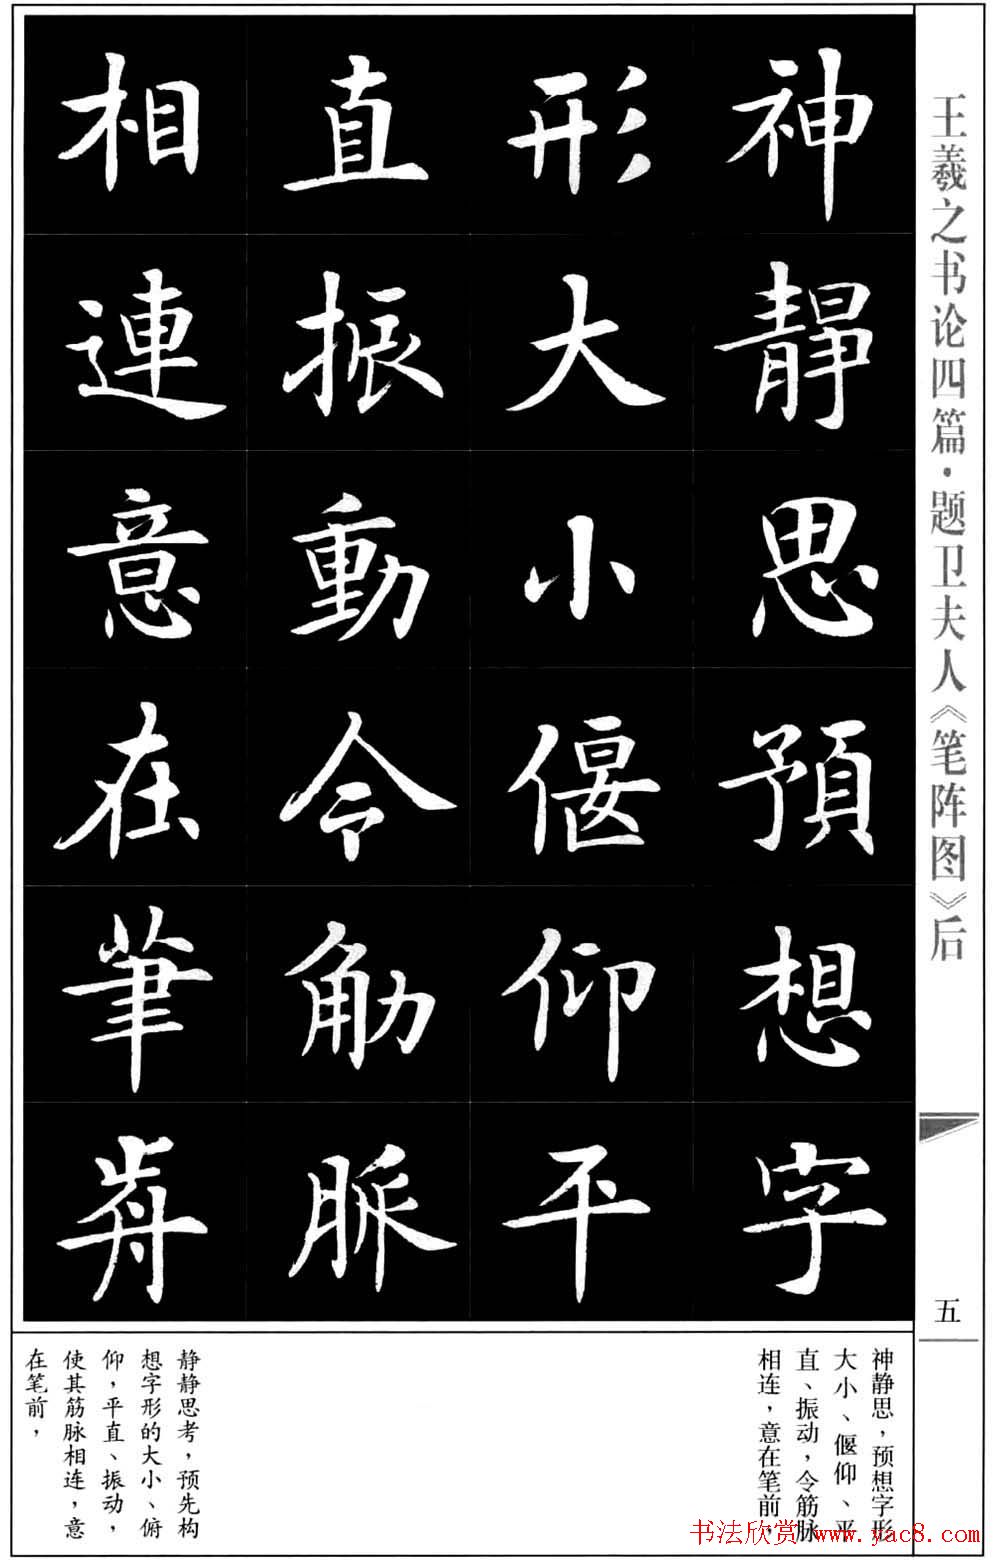 王羲之书论四篇·题卫夫人《笔阵图》后
五
神靜思預想字
形大小偃仰平
直振動令筋脈
相連意在筆歬
神静思，预想字形
大小、偃仰、平
直、振动，令筋脉
相连，意在笔前，
静静思考，预先构
想字形的大小、俯
仰，平直、振动，
使其筋脉相连，意
在笔前，
书法欣赏 www.yac8.com